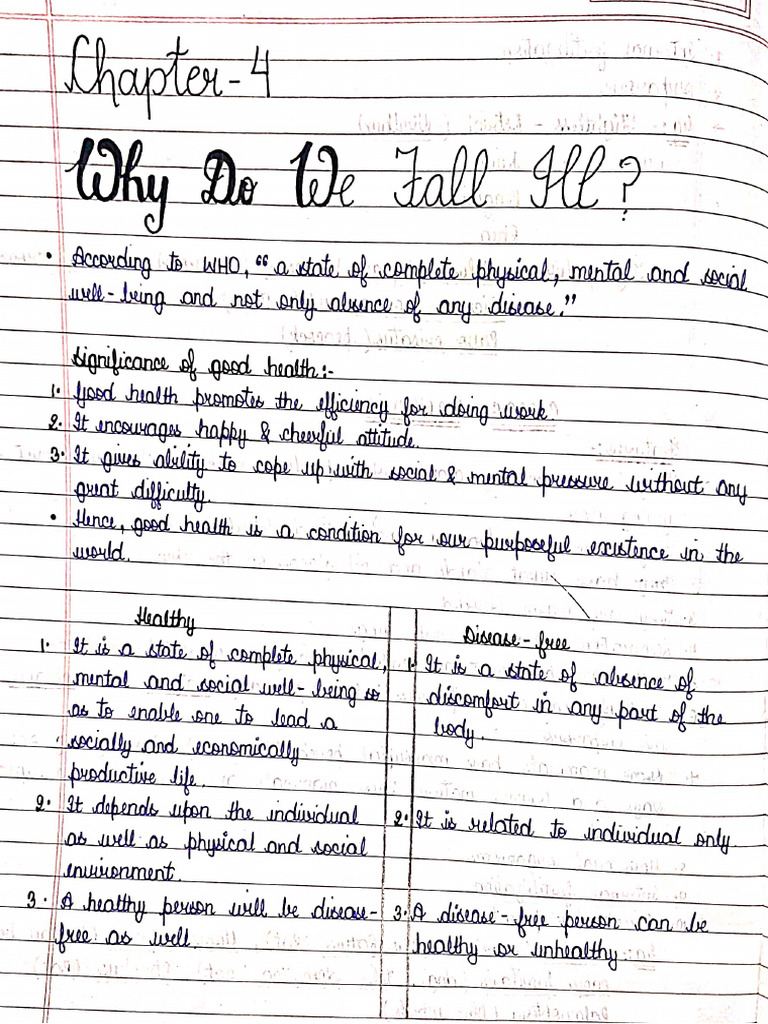 Chapter-4
Why Do We Fall Ill?
• According to WHO, "a state of complete physical, mental and social
well-being and not only absence of any disease."
Significance of good health:-
1. Good health promotes the efficiency for doing work.
2. It encourages happy & cheerful attitude.
3. It gives ability to cope up with social & mental pressure without any
great difficulty.
• Hence, good health is a condition for our purposeful existence in the
world.
Healthy
1. It is a state of complete physical,
mental and social well-being so
as to enable one to lead a
socially and economically
productive life.
2. It depends upon the individual
as well as physical and social
environment.
3. A healthy person will be disease-
free as well.
Disease-free
1. It is a state of absence of
discomfort in any part of the
body.
2. It is related to individual only.
3. A disease-free person can be
healthy or unhealthy